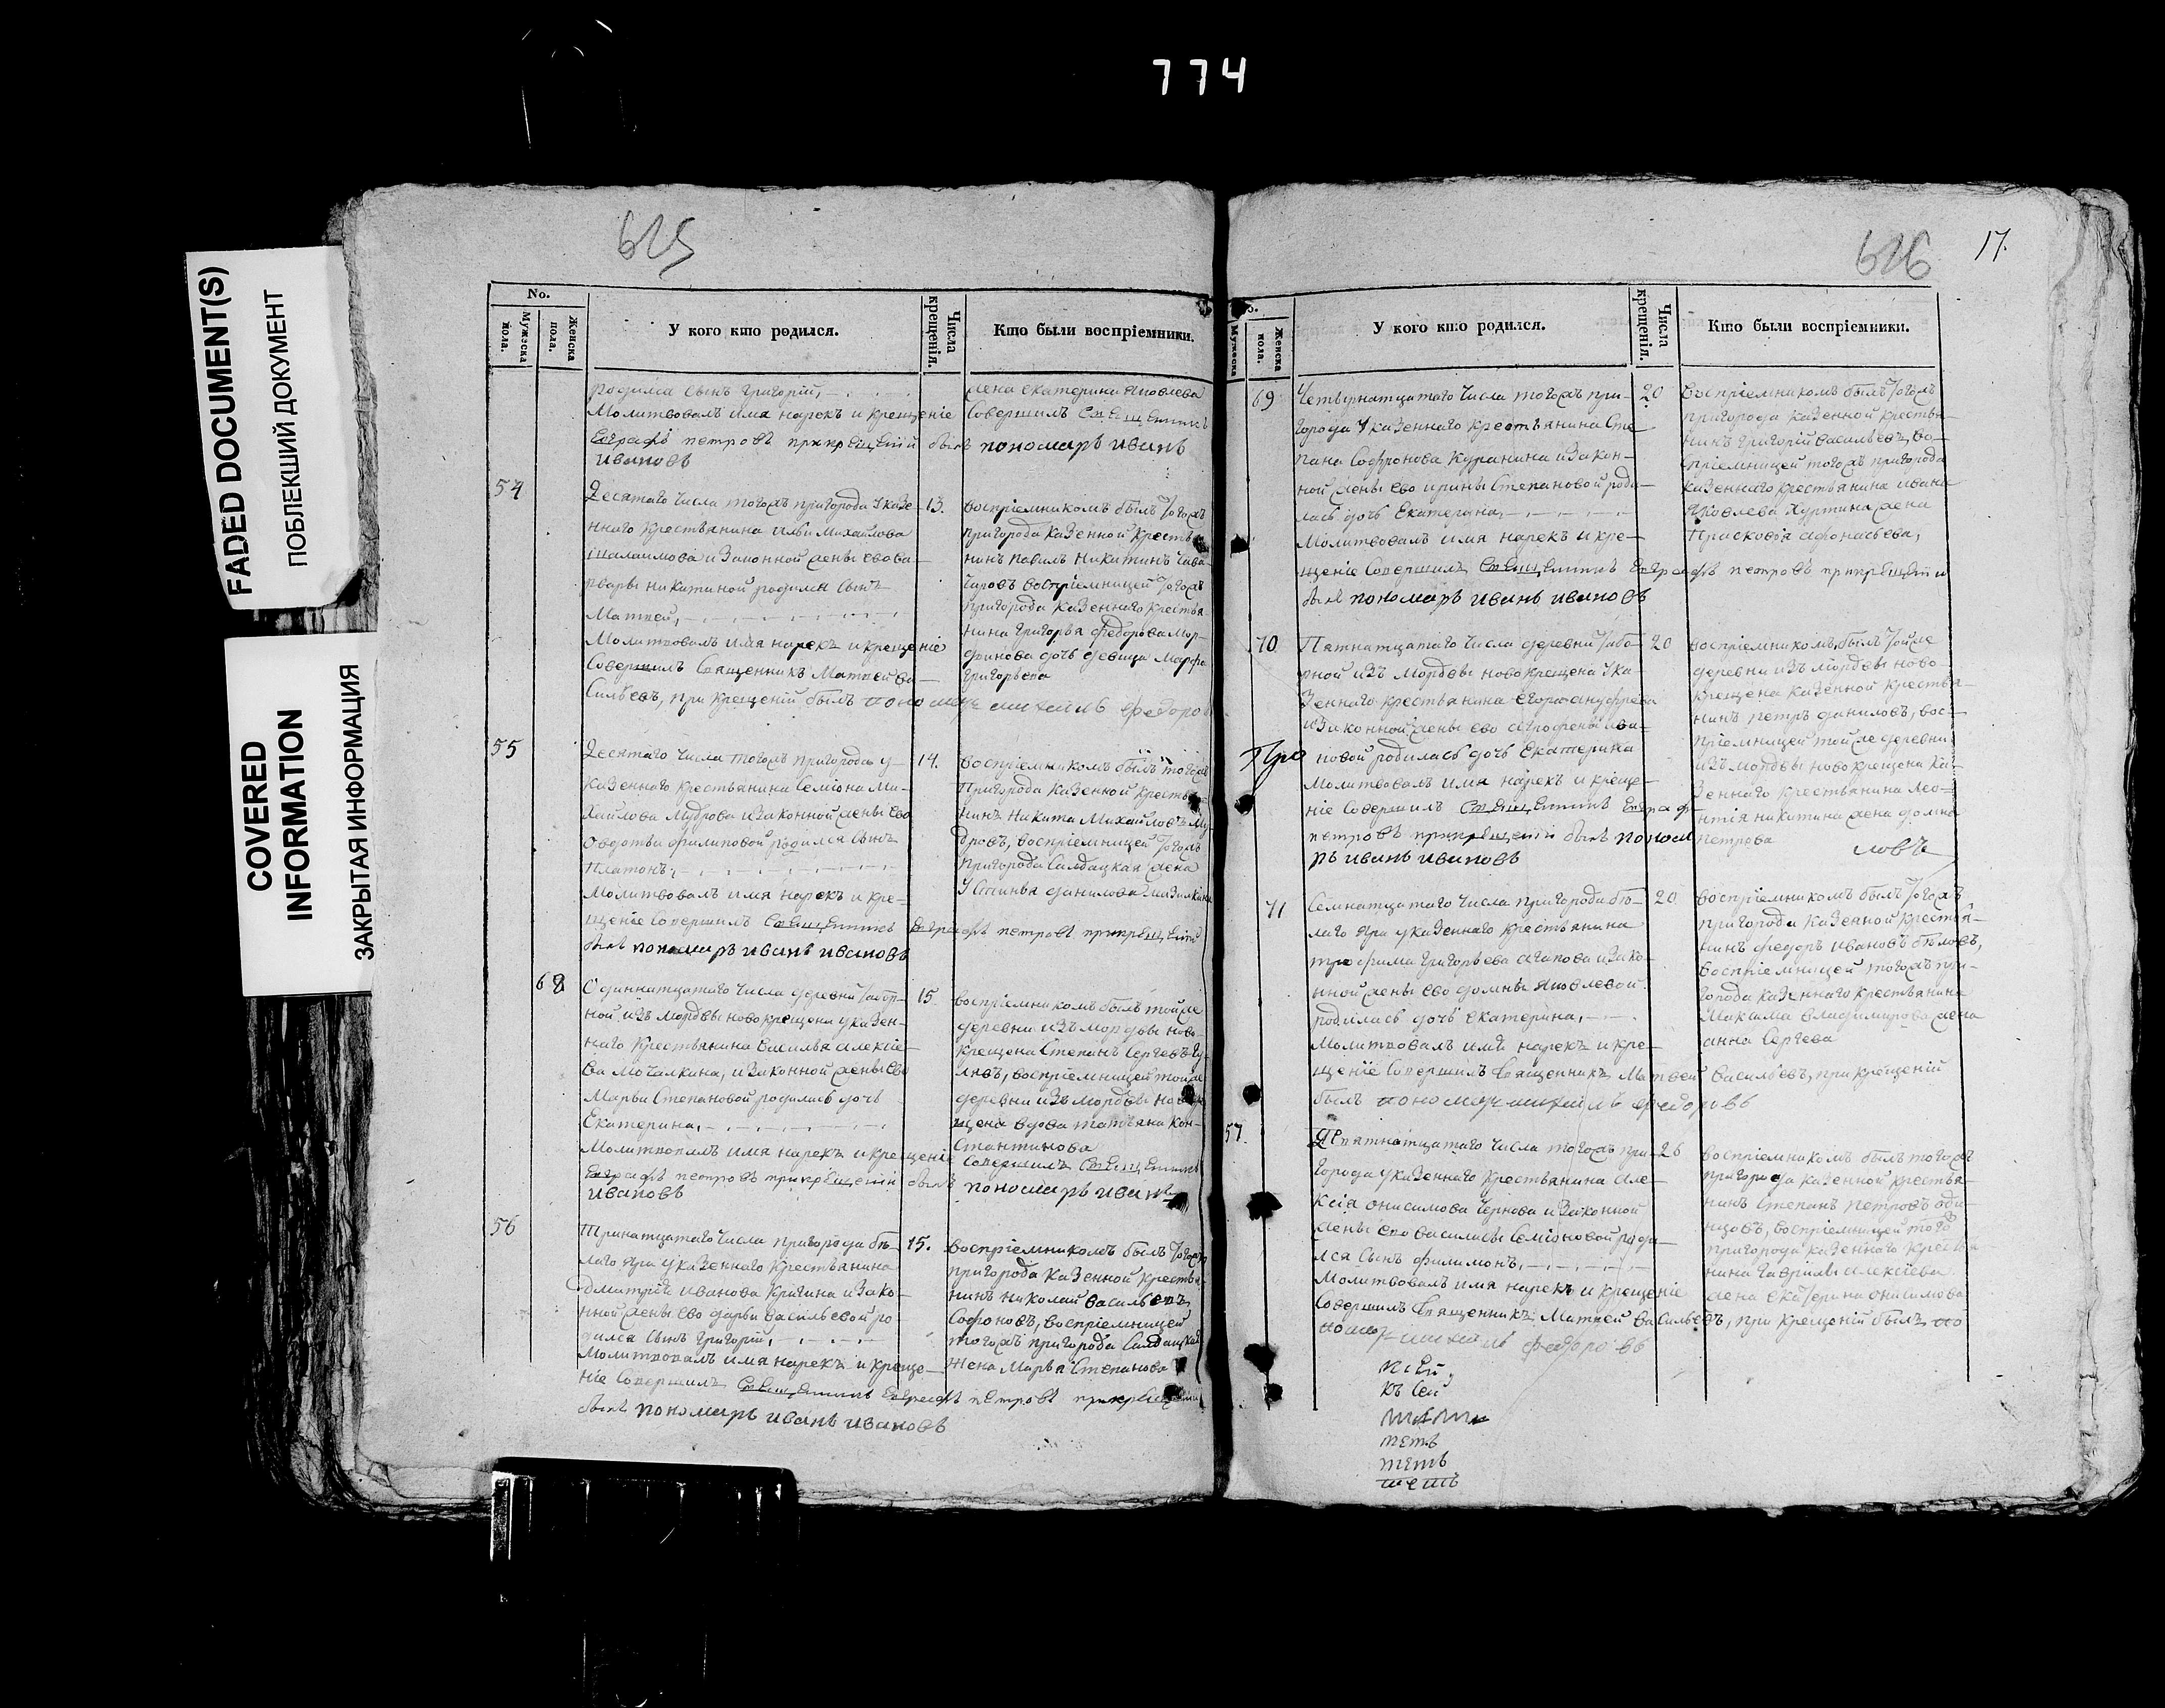 774
FADED DOCUMENT(S)
ПОБЛЕКШИЙ ДОКУМЕНТ
COVERED
INFORMATION
ЗАКРЫТАЯ ИНФОРМАЦИЯ
625
No.
Мужеска пола.
Женска пола.
У кого кто родился.
Числа крещенія.
Кто были воспріемники.
родился сынъ Григорій,
Молитвовалъ имя нарекъ и крещеніе
Евграфъ петровъ при крещеніи былъ пономарь иванъ
ивановъ
жена екатерина яковлева
Совершилъ
54
Десятаго числа тогожъ пригорода указе-
ннаго крестьянина ильи михайлова
шалаимова и законной жены ево ва-
рвары никитиной родился сынъ
Матвей,
Молитвовалъ имя нарекъ и крещеніе
Совершилъ Священникъ Матвей Ва-
сильевъ, при крещеній былъ пономарь михаилъ федоровъ
13.
воспріемникомъ былъ тогожъ
пригорода казенной крестья-
нинъ павилъ никитинъ
воспріемницей тогожъ
пригорода казеннаго крестья-
нина григорья федорова мор-
финова дочь девица марфа
григорьева
55
Десятаго числа тогожъ пригорода у-
казеннаго крестьянина семіона ми-
хайлова мудрова и законной жены ево
Федотьи филиповой родился сынъ
Платонъ,
Молитвовалъ имя нарекъ и кре-
щеніе совершилъ Евграфъ петровъ при крещеніи
былъ пономарь иванъ ивановъ
14.
воспріемникомъ былъ тогожъ
пригорода казенной крестья-
нинъ никита михайловъ му-
дровъ, воспріемницей тогожъ
пригорода салдацкая жена
устинья данилова
68
Одиннатцатаго числа деревни
ной изъ мордвы новокрещена указен-
наго крестьянина василья алексіе-
ва мочалкина, и законной жены ево
Марьи Степановой родилась дочь
Екатерина,
Молитвовалъ имя нарекъ и крещеніе
Евграфъ петровъ при крещеніи былъ пономарь иванъ
ивановъ
15
воспріемникомъ былъ тойже
деревни изъ мордвы ново-
крещена степанъ сергеевъ
воспріемницей тойже
деревни изъ мордвы новокре-
щена вдова татьяна кон-
стантинова
совершилъ
56
Тринатцатаго числа пригорода бѣ-
лаго яра указеннаго крестьянина
Дмитрія иванова кригина и зако-
нной жены ево дарьи васильевой ро-
дился сынъ григорій,
Молитвовалъ имя нарекъ и креще-
ніе совершилъ Евграфъ петровъ при крещеніи
былъ пономарь иванъ ивановъ
15.
воспріемникомъ былъ тогожъ
пригорода казенной крестья-
нинъ николай васильевъ
софоновъ, воспріемницей
тогожъ пригорода салдацкая
жена марья степанова
626
17.
Мужеска
Женска пола.
У кого кто родился.
Числа крещенія.
Кто были воспріемники.
69
Четвирнатцатаго числа тогожъ при-
города указеннаго крестьянина Сте
пана софронова куранина и закон-
ной жены ево ирины степановой роди-
лась дочь Екатерина,
Молитвовалъ имя нарекъ и кре-
щеніе совершилъ Евграфъ петровъ при крещеніи
былъ пономарь иванъ ивановъ
20
воспріемникомъ былъ тогожъ
пригорода казенной крестья-
нинъ григорій васильевъ, вос-
пріемницей тогожъ пригорода
казеннаго крестьянина ивана
яковлева куртина жена
Прасковія афонасьева,
70
Пятнатцатаго числа деревни
рной изъ мордвы новокрещена ука-
зеннаго крестьянина егора ануфрева
и законной жены ево аграфены ива-
новой родилась дочь екатерина
Молитвовалъ имя нарекъ и креще-
ніе совершилъ Евграфъ
петровъ при крещеніи былъ пономарь
иванъ ивановъ
20
воспріемникомъ былъ тойже
деревни изъ мордвы ново-
крещена казенной крестья-
нинъ петръ даниловъ, вос-
пріемницей тойже деревни
изъ мордвы новокрещена ка-
зеннаго крестьянина лео-
нтія никитина жена домна
петрова
71
Семнатцатаго числа пригорода бѣ-
лаго яра указеннаго крестьянина
трофима григорьева агапова и зако-
нной жены ево домны яковлевой
родилась дочь екатерина,
Молитвовалъ имя нарекъ и кре-
щеніе совершилъ Священникъ Матвей Васильевъ, при крещеній
былъ пономарь михаилъ федоровъ
20
воспріемникомъ былъ тогожъ
пригорода казенной крестья-
нинъ федоръ ивановъ бѣловъ,
воспріемницей тогожъ при-
города казеннаго крестьянина
Максима владимирова жена
анна Сергеева
57.
Девятнатцатаго числа тогожъ при-
города указеннаго крестьянина але-
ксія онисимова чернова и законной
жены ево василисы семіоновой роди-
лся сынъ филимонъ,
Молитвовалъ имя нарекъ и крещеніе
Совершилъ Священникъ Матвей Васильевъ, при крещеній былъ по
номарь михаилъ федоровъ
26
воспріемникомъ былъ тогожъ
пригорода казенной крестья-
нинъ степанъ петровъ оди-
нцовъ, воспріемницей того
пригорода казеннаго крестья-
нина гаврилы алексіева
жена екатерина онисимова